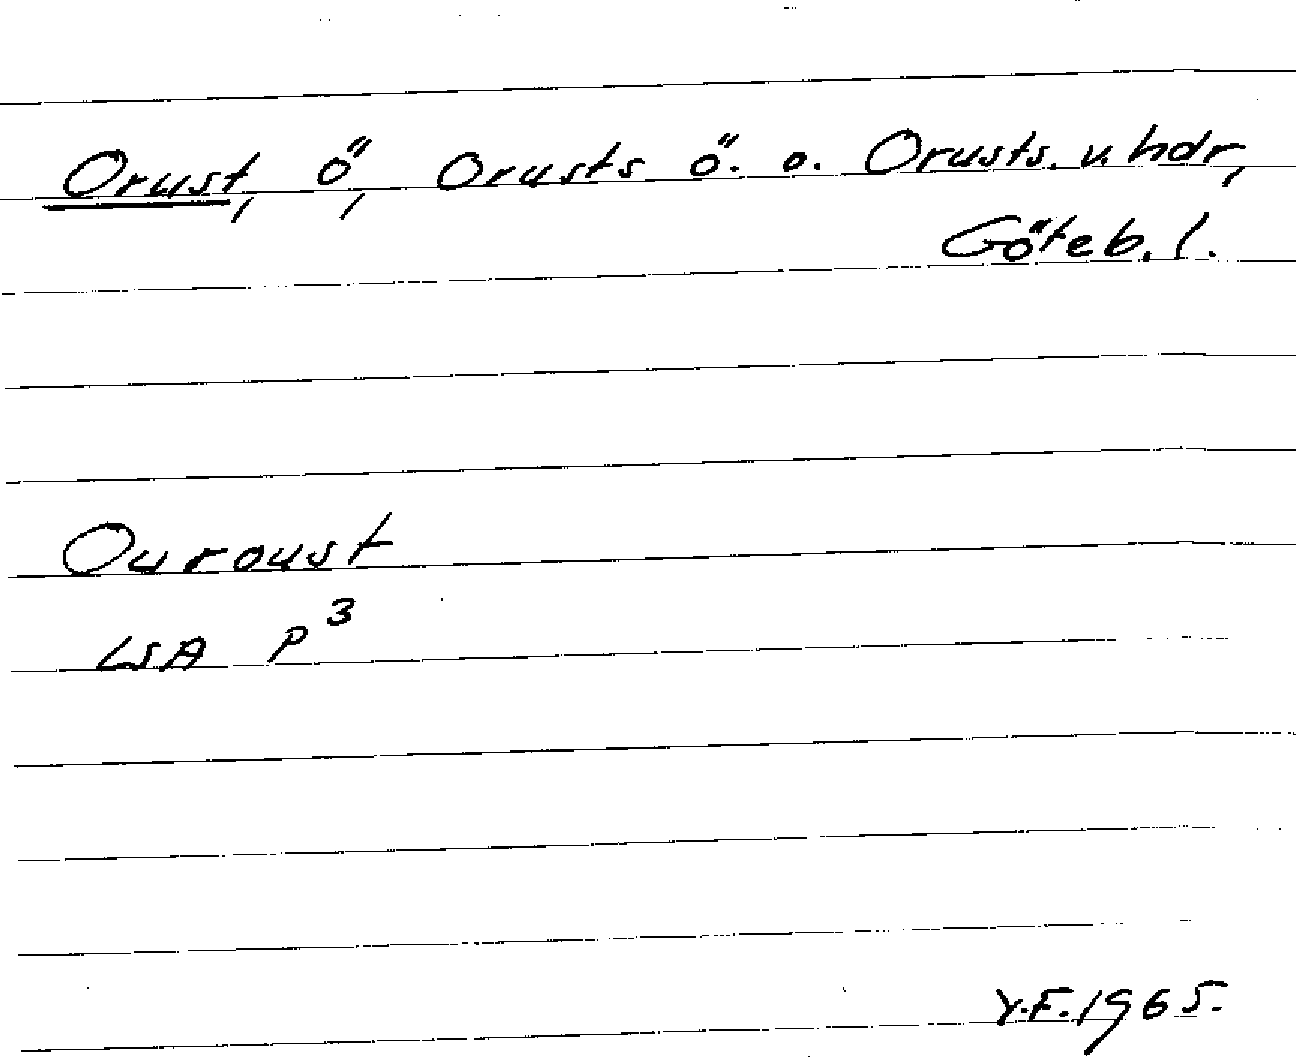 Orust, ö, Orusts ö. o. Orusts. v. hdr,
Göteb. l.
Ouroust
LSA P³
Y.F. 1965.